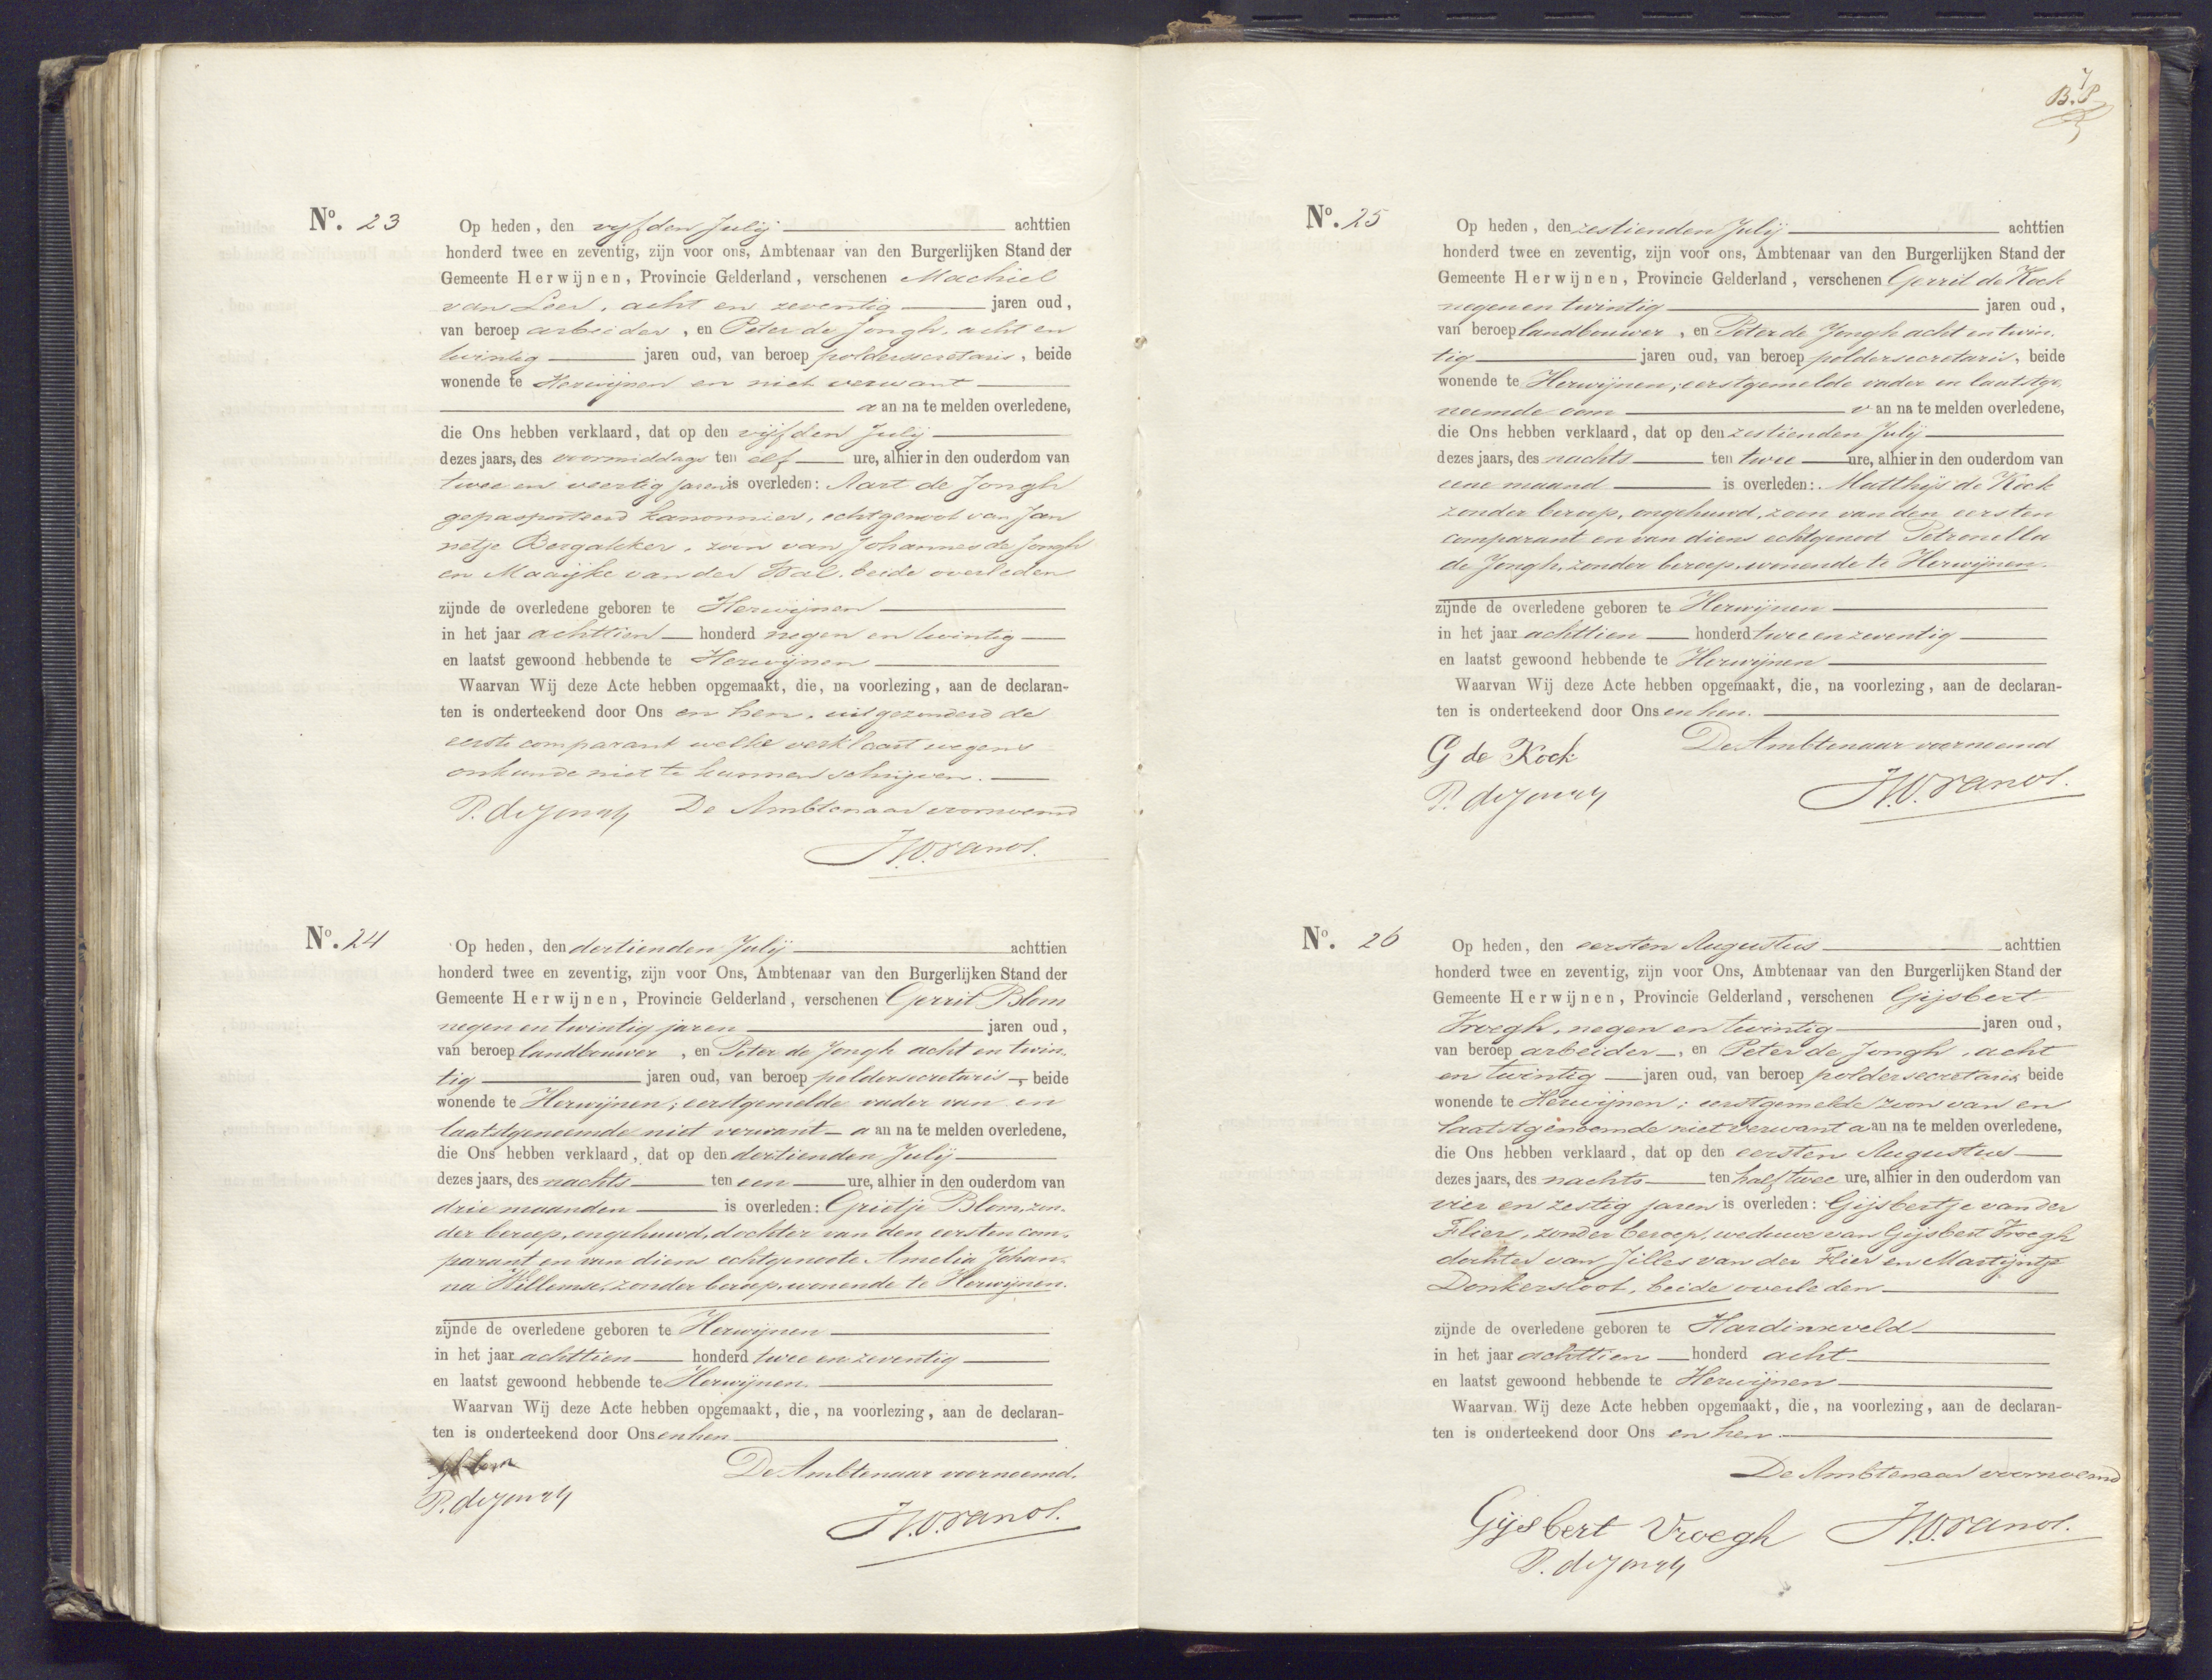 No. 23
Op heden, den vyfden Julij achttien
honderd twee en zeventig, zijn voor ons, Ambtenaar van den Burgerlijken Stand der
Gemeente Herwijnen, Provincie Gelderland, verschenen Machiel
van Leer, acht en zeventig jaren oud,
van beroep arbeider, en Peter de Jongh, acht en
twintig jaren oud, van beroep poldersecretaris, beide
wonende te Herwijnen en niet verwant
aan na te melden overledene,
die Ons hebben verklaard, dat op den vijfden Julij
dezes jaars, des voormiddags ten elf ure, alhier in den ouderdom van
twee en veertig jaren is overleden: Aart de Jongh
gepasporteerd kanonnier, echtgenoot van Jan
netje Bergakker, zoon van Johannes de Jongh
en Maaijke van der Wal, beide overleden
zijnde de overledene geboren te Herwijnen
in het jaar achttien honderd negen en twintig
en laatst gewoond hebbende te Herwijnen
Waarvan Wij deze Acte hebben opgemaakt, die, na voorlezing, aan de declaran-
ten is onderteekend door Ons en hen, uitgezonderd de
eerste comparant welke verklaart wegens
onkunde niet te kunnen schrijven.
P. de Jongh De Ambtenaar voornoemd
No. 24
Op heden, den dertienden Julij achttien
honderd twee en zeventig, zijn voor Ons, Ambtenaar van den Burgerlijken Stand der
Gemeente Herwijnen, Provincie Gelderland, verschenen Gerrit Blom
negen en twintig jaren jaren oud,
van beroep landbouwer, en Peter de Jongh acht en twin-
tig jaren oud, van beroep poldersecretaris, beide
wonende te Herwijnen; eerstgemelde vader van en
laatstgenoemde niet verwant aan na te melden overledene,
die Ons hebben verklaard, dat op den dertienden Julij
dezes jaars, des nachts ten een ure, alhier in den ouderdom van
drie maanden is overleden: Grietje Blom, zon-
der beroep, ongehuwd, dochter van den eersten com-
parant en van diens echtgenoote Amelia Johan-
na Willemse, zonder beroep, wonende te Herwijnen.
zijnde de overledene geboren te Herwijnen
in het jaar achttien honderd twee en zeventig
en laatst gewoond hebbende te Herwijnen.
Waarvan Wij deze Acte hebben opgemaakt, die, na voorlezing, aan de declaran-
ten is onderteekend door Ons en hen
De Ambtenaar voornoemd.
P. de Jongh
B.P.
No. 25
Op heden, den zestienden Julij achttien
honderd twee en zeventig, zijn voor ons, Ambtenaar van den Burgerlijken Stand der
Gemeente Herwijnen, Provincie Gelderland, verschenen Gerrit de Kock
negen en twintig jaren oud,
van beroep landbouwer, en Peter de Jongh acht en twin-
tig jaren oud, van beroep poldersecretaris, beide
wonende te Herwijnen; eerstgemelde vader en laatstge-
noemde oom van na te melden overledene,
die Ons hebben verklaard, dat op den zestienden Julij
dezes jaars, des nachts ten twee ure, alhier in den ouderdom van
eene maand is overleden: Matthijs de Kock
zonder beroep, ongehuwd, zoon van den eersten
comparant en van diens echtgenoot Petronella
de Jongh, zonder beroep, wonende te Herwijnen.
zijnde de overledene geboren te Herwijnen
in het jaar achttien honderd twee en zeventig
en laatst gewoond hebbende te Herwijnen
Waarvan Wij deze Acte hebben opgemaakt, die, na voorlezing, aan de declaran-
ten is onderteekend door Ons en hen.
G de Kock De Ambtenaar voornoemd
P. de Jongh
No. 26
Op heden, den eersten Augustus achttien
honderd twee en zeventig, zijn voor Ons, Ambtenaar van den Burgerlijken Stand der
Gemeente Herwijnen, Provincie Gelderland, verschenen Gijsbert
Vroegh, negen en twintig jaren oud,
van beroep arbeider, en Peter de Jongh, acht
en twintig jaren oud, van beroep poldersecretaris beide
wonende te Herwijnen; eerstgemelde zoon van en
laatstgenoemde niet verwant aan na te melden overledene,
die Ons hebben verklaard, dat op den eersten Augustus
dezes jaars, des nachts ten half twee ure, alhier in den ouderdom van
vier en zestig jaren is overleden: Gijsbertje van der
Flier, zonder beroep, weduwe van Gijsbert Vroegh
dochter van Jilles van der Flier en Martijntje
Donkersloot, beide overleden
zijnde de overledene geboren te Hardinxveld
in het jaar achttien honderd acht
en laatst gewoond hebbende te Herwijnen
Waarvan Wij deze Acte hebben opgemaakt, die, na voorlezing, aan de declaran-
ten is onderteekend door Ons en hen.
De Ambtenaar voornoemd
Gijsbert Vroegh
P. de Jongh